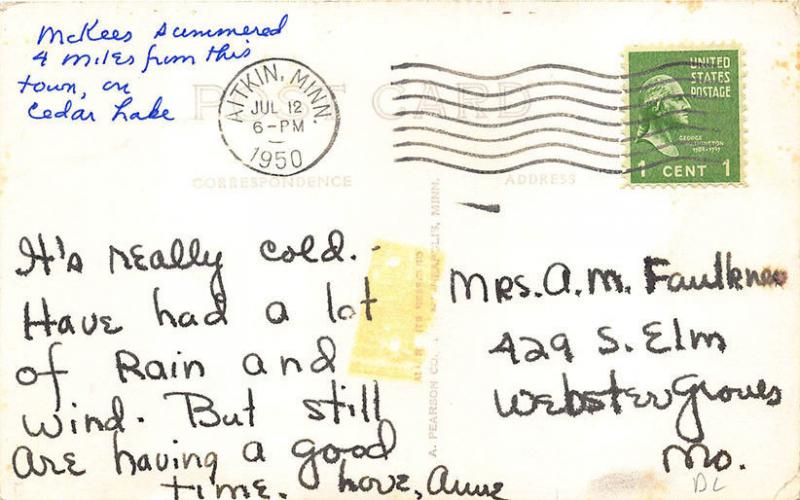 McKees summered
4 miles from this
town, on
Cedar Lake
POST CARD
AITKIN, MINN.
JUL 12
6-PM
1950
UNITED
STATES
POSTAGE
GEORGE
WASHINGTON
1789-1797
1 CENT 1
CORRESPONDENCE
ADDRESS
It's really cold.
Have had a lot
of Rain and
wind. But still
are having a good
time. Love, Anne
A. PEARSON CO.
MINNEAPOLIS, MINN.
Mrs. A. M. Faulkner
429 S. Elm
Webster Groves
Mo.